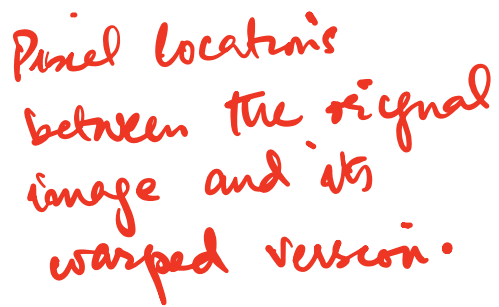 Pixel locations
between the original
image and its
warped version.